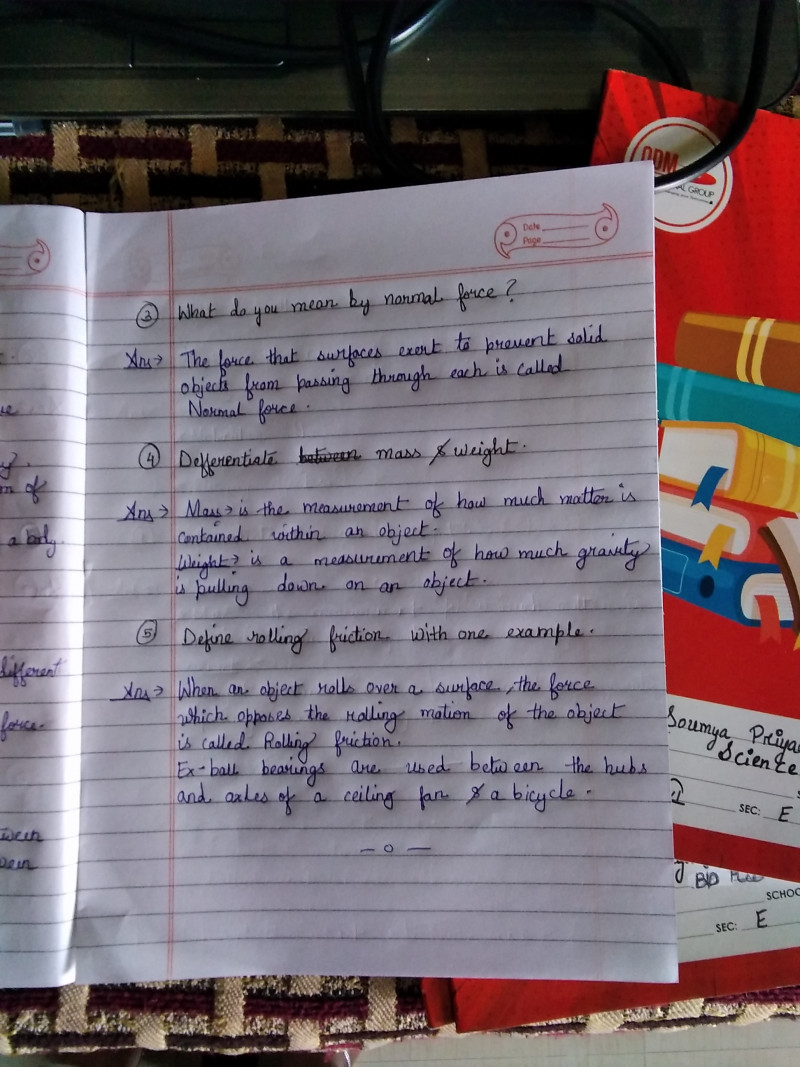 Date
Page
③ What do you mean by normal force?
Ans→ The force that surfaces exert to prevent solid
objects from passing through each is called
Normal force.
④ Defferentiate between mass & weight.
Ans→ Mass→ is the measurement of how much matter is
contained within an object.
Weight→ is a measurement of how much gravity
is pulling down on an object.
⑤ Define rolling friction with one example.
Ans→ When an object rolls over a surface, the force
which opposes the rolling motion of the object
is called Rolling friction.
Ex-ball bearings are used between the hubs
and axles of a ceiling fan & a bicycle.
— o —
m of
a body.
different
force.
ODM
GROUP
Soumya
Science
SEC: E
SEC: E